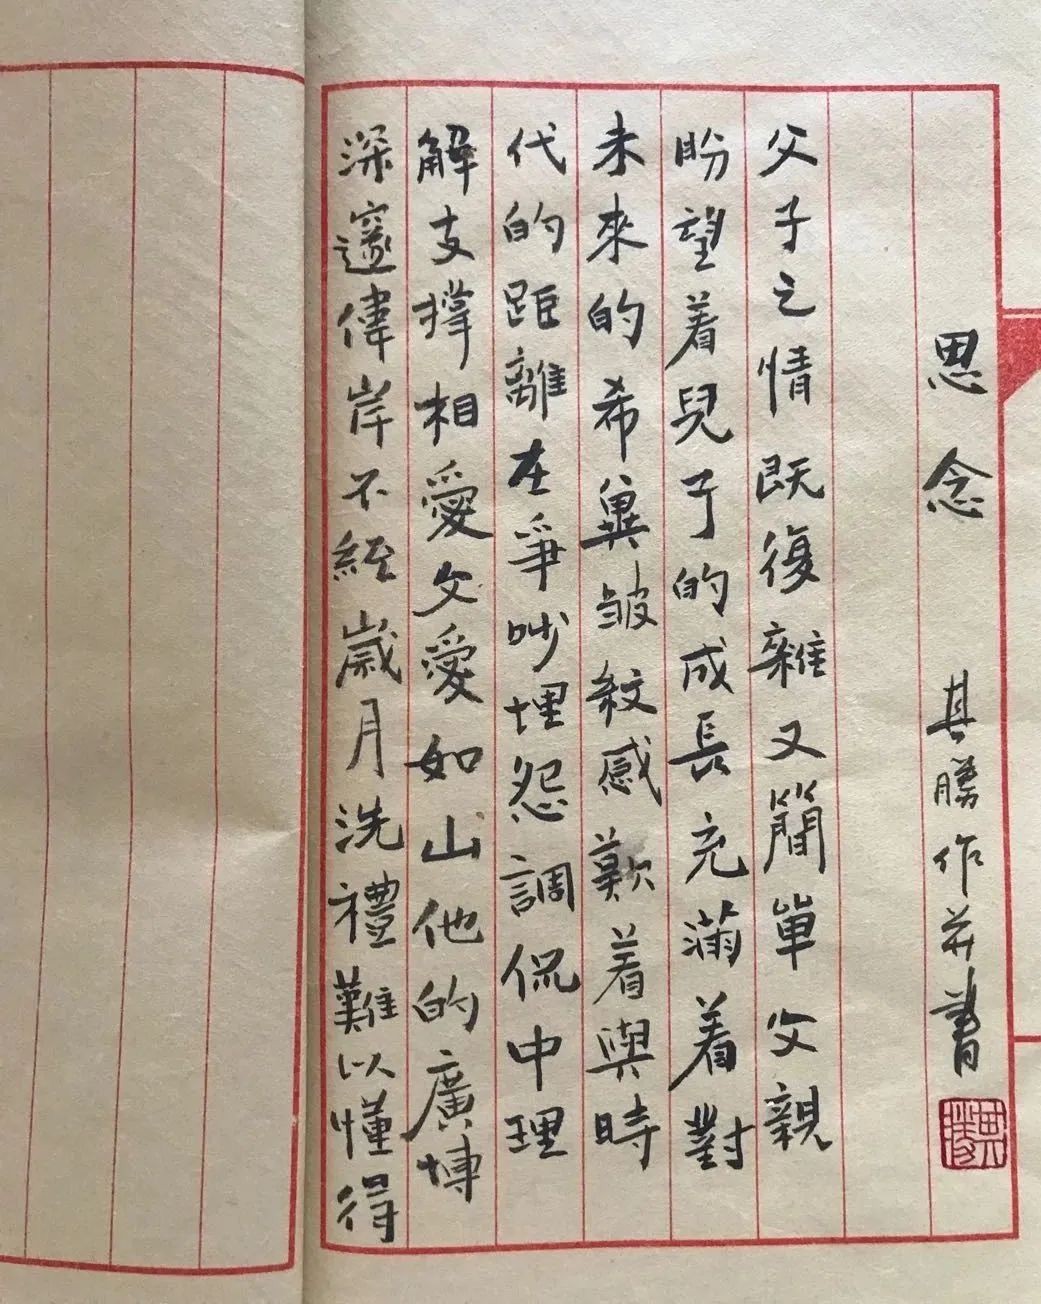 思念 其勝作并書
其勝
父子之情既復雜又簡單父親
盼望着兒子的成長充滿着對
未來的希冀皱紋感歎着與時
代的距離在爭吵埋怨調侃中理
解支撑相愛父愛如山他的廣博
深邃偉岸不經歲月洗禮難以懂得